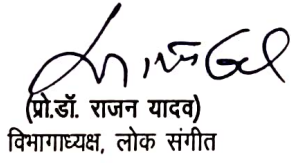 (प्रो.डॉ. राजन यादव)
विभागाध्यक्ष, लोक संगीत